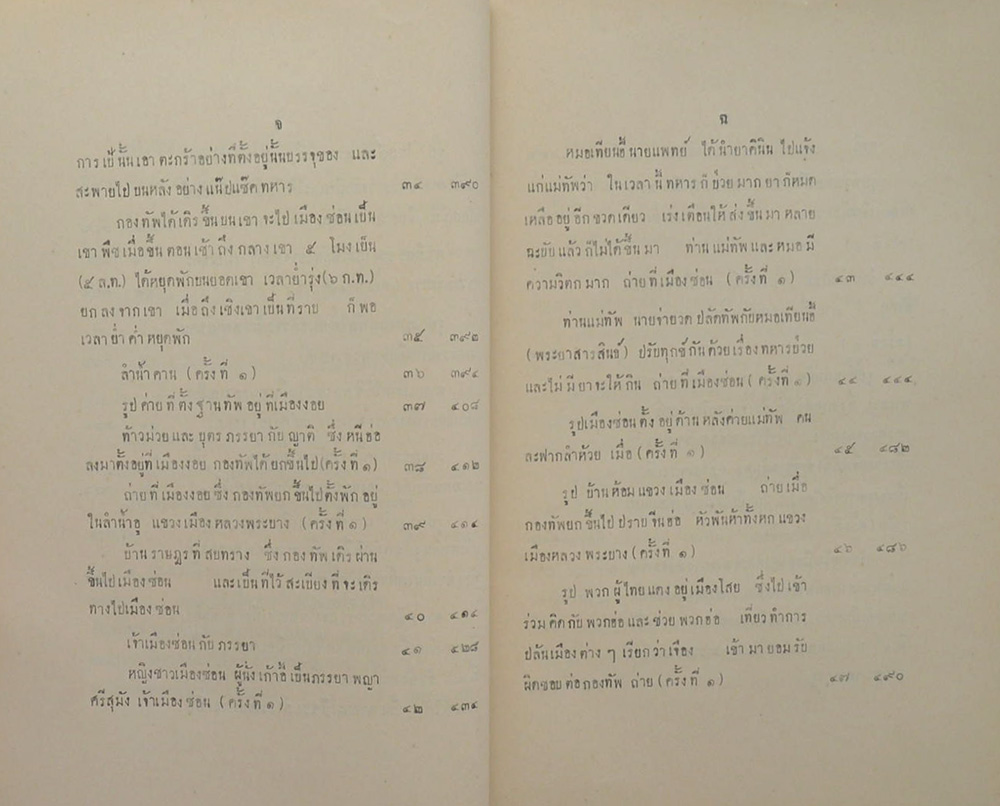 จ
การ เป้ นั้น เอา ตะกร้าอย่างที่ตั้งอยู่นั้นบรรจุของ และ
สะพายไป บนหลัง อย่าง แน๊ปแซ๊ค ทหาร ๓๔ ๓๙๐
กอง ทัพ ได้ เดิร ขึ้น บน เขา จะไป เมือง ซ่อน เป็น
เขา พืช เมื่อ ขึ้น ตอน เช้า ถึง กลาง เขา ๕ โมง เย็น
(๕ ล.ท.) ได้หยุดพักบนยอดเขา เวลาย่ำรุ่ง(๖ ก.ท.)
ยก ลง จาก เขา เมื่อ ถึง เชิง เขา เป็น ที่ ราบ ก็ พอ
เวลา ย่ำ ค่ำ หยุดพัก ๓๕ ๓๙๒
ลำน้ำ คาน (ครั้ง ที่ ๑) ๓๖ ๓๙๔
รูป ค่าย ที่ ตั้ง ฐาน ทัพ อยู่ ที่ เมืองงอย ๓๗ ๔๐๘
ท้าวม่วย และ บุตร ภรรยา กับ ญาติ ซึ่ง หนี ฮ่อ
ลงมาตั้งอยู่ที่ เมืองงอย กองทัพได้ ยกขึ้นไป(ครั้งที่ ๑) ๓๘ ๔๑๒
ถ่าย ที่ เมืองงอย ซึ่ง กองทัพยก ขึ้นไปตั้งพัก อยู่
ใน ลำน้ำอู แขวง เมือง หลวงพระบาง (ครั้ง ที่ ๑) ๓๙ ๔๑๔
บ้าน ราษฎร ที่ สบทราง ซึ่ง กอง ทัพ เดิร ผ่าน
ขึ้นไป เมือง ซ่อน และ เป็น ที่ไว้ สะเบียง ที่ จะ เดิร
ทางไปเมือง ซ่อน ๔๐ ๔๑๔
เจ้าเมืองซ่อน กับ ภรรยา ๔๑ ๔๒๘
หญิงชาวเมืองซ่อน ผู้นั่ง เก้าอี้ เป็นภรรยา พญา
ศรีสุมัง เจ้าเมือง ซ่อน (ครั้ง ที่ ๑) ๔๒ ๔๓๔
ฉ
หมอเทียนฮี้ นายแพทย์ ได้ นำยาคินิน ไปแจ้ง
แก่แม่ทัพว่า ใน เวลา นี้ ทหาร ก็ ป่วย มาก ยา ก็หมด
เหลือ อยู่ อีก ขวด เดียว เร่ง เตือนให้ ส่ง ขึ้น มา หลาย
ฉะบับ แล้ว ก็ไม่ได้ขึ้น มา ท่าน แม่ทัพ และ หมอ มี
ความวิตก มาก ถ่าย ที่ เมืองซ่อน (ครั้งที่ ๑) ๔๓ ๔๔๔
ท่านแม่ทัพ นายจ่ายวด ปลัดทัพกับหมอเทียนฮี้
(พระยาสารสินธ์) ปรับทุกข์ กัน ด้วย เรื่อง ทหารป่วย
และไม่ มี ยา จะให้ กิน ถ่าย ที่ เมืองซ่อน (ครั้งที่ ๑) ๔๔ ๔๔๔
รูปเมืองซ่อน ตั้ง อยู่ ด้าน หลังค่ายแม่ทัพ คน
ละฟากลำห้วย เมื่อ (ครั้ง ที่ ๑) ๔๕ ๔๘๒
รูป บ้าน ห้อม แขวง เมือง ซ่อน ถ่าย เมื่อ
กองทัพยก ขึ้นไป ปราบ จีนฮ่อ หัวพันห้าทั้งหก แขวง
เมืองหลวง พระบาง (ครั้งที่ ๑) ๔๖ ๔๘๖
รูป พวก ผู้ไทยแดง อยู่เมืองไสย ซึ่งไป เข้า
ร่วม คิด กับ พวกฮ่อ และ ช่วย พวก ฮ่อ เที่ยว ทำการ
ปล้นเมือง ต่าง ๆ เรียก ว่า เจือง เข้า มา ยอม รับ
ผิดชอบ ต่อ กองทัพ ถ่าย (ครั้ง ที่ ๑) ๔๗ ๔๙๐